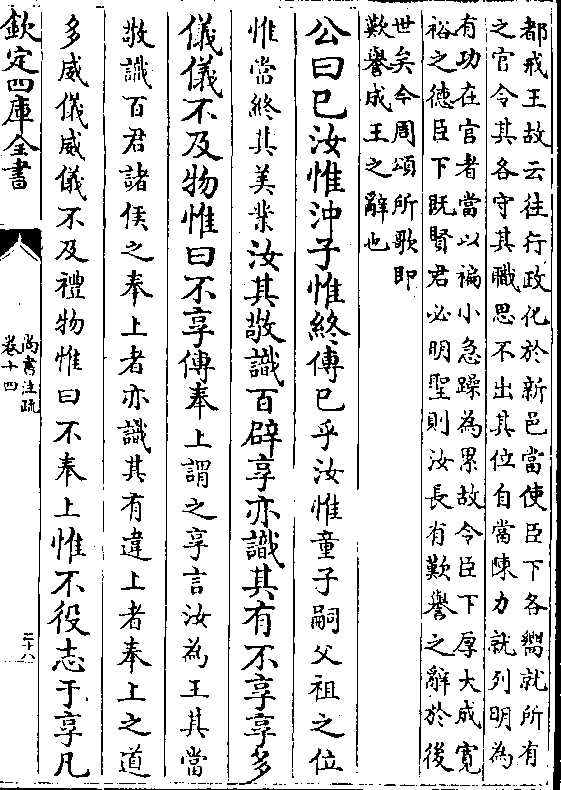 都戒王故云往行政化於新邑當使臣下各嚮就所有
之官令其各守其職思不出其位自當陳力就列明為
有功在官者當以褊小急躁為累故令臣下厚大成寛
裕之德臣下既賢君必明聖則汝長有歎譽之辭於後
世矣今周頌所歌即
歎譽成王之辭也
公曰已汝惟沖子惟終傳已乎汝惟童子嗣父祖之位
惟當終其美業汝其敬識百辟享亦識其有不享享多
儀儀不及物惟曰不享傳奉上謂之享言汝為王其當
敬識百君諸侯之奉上者亦識其有違上者奉上之道
多威儀威儀不及禮物惟曰不奉上惟不役志于享凡
欽定四庫全書
尚書注疏
卷十四
二十八